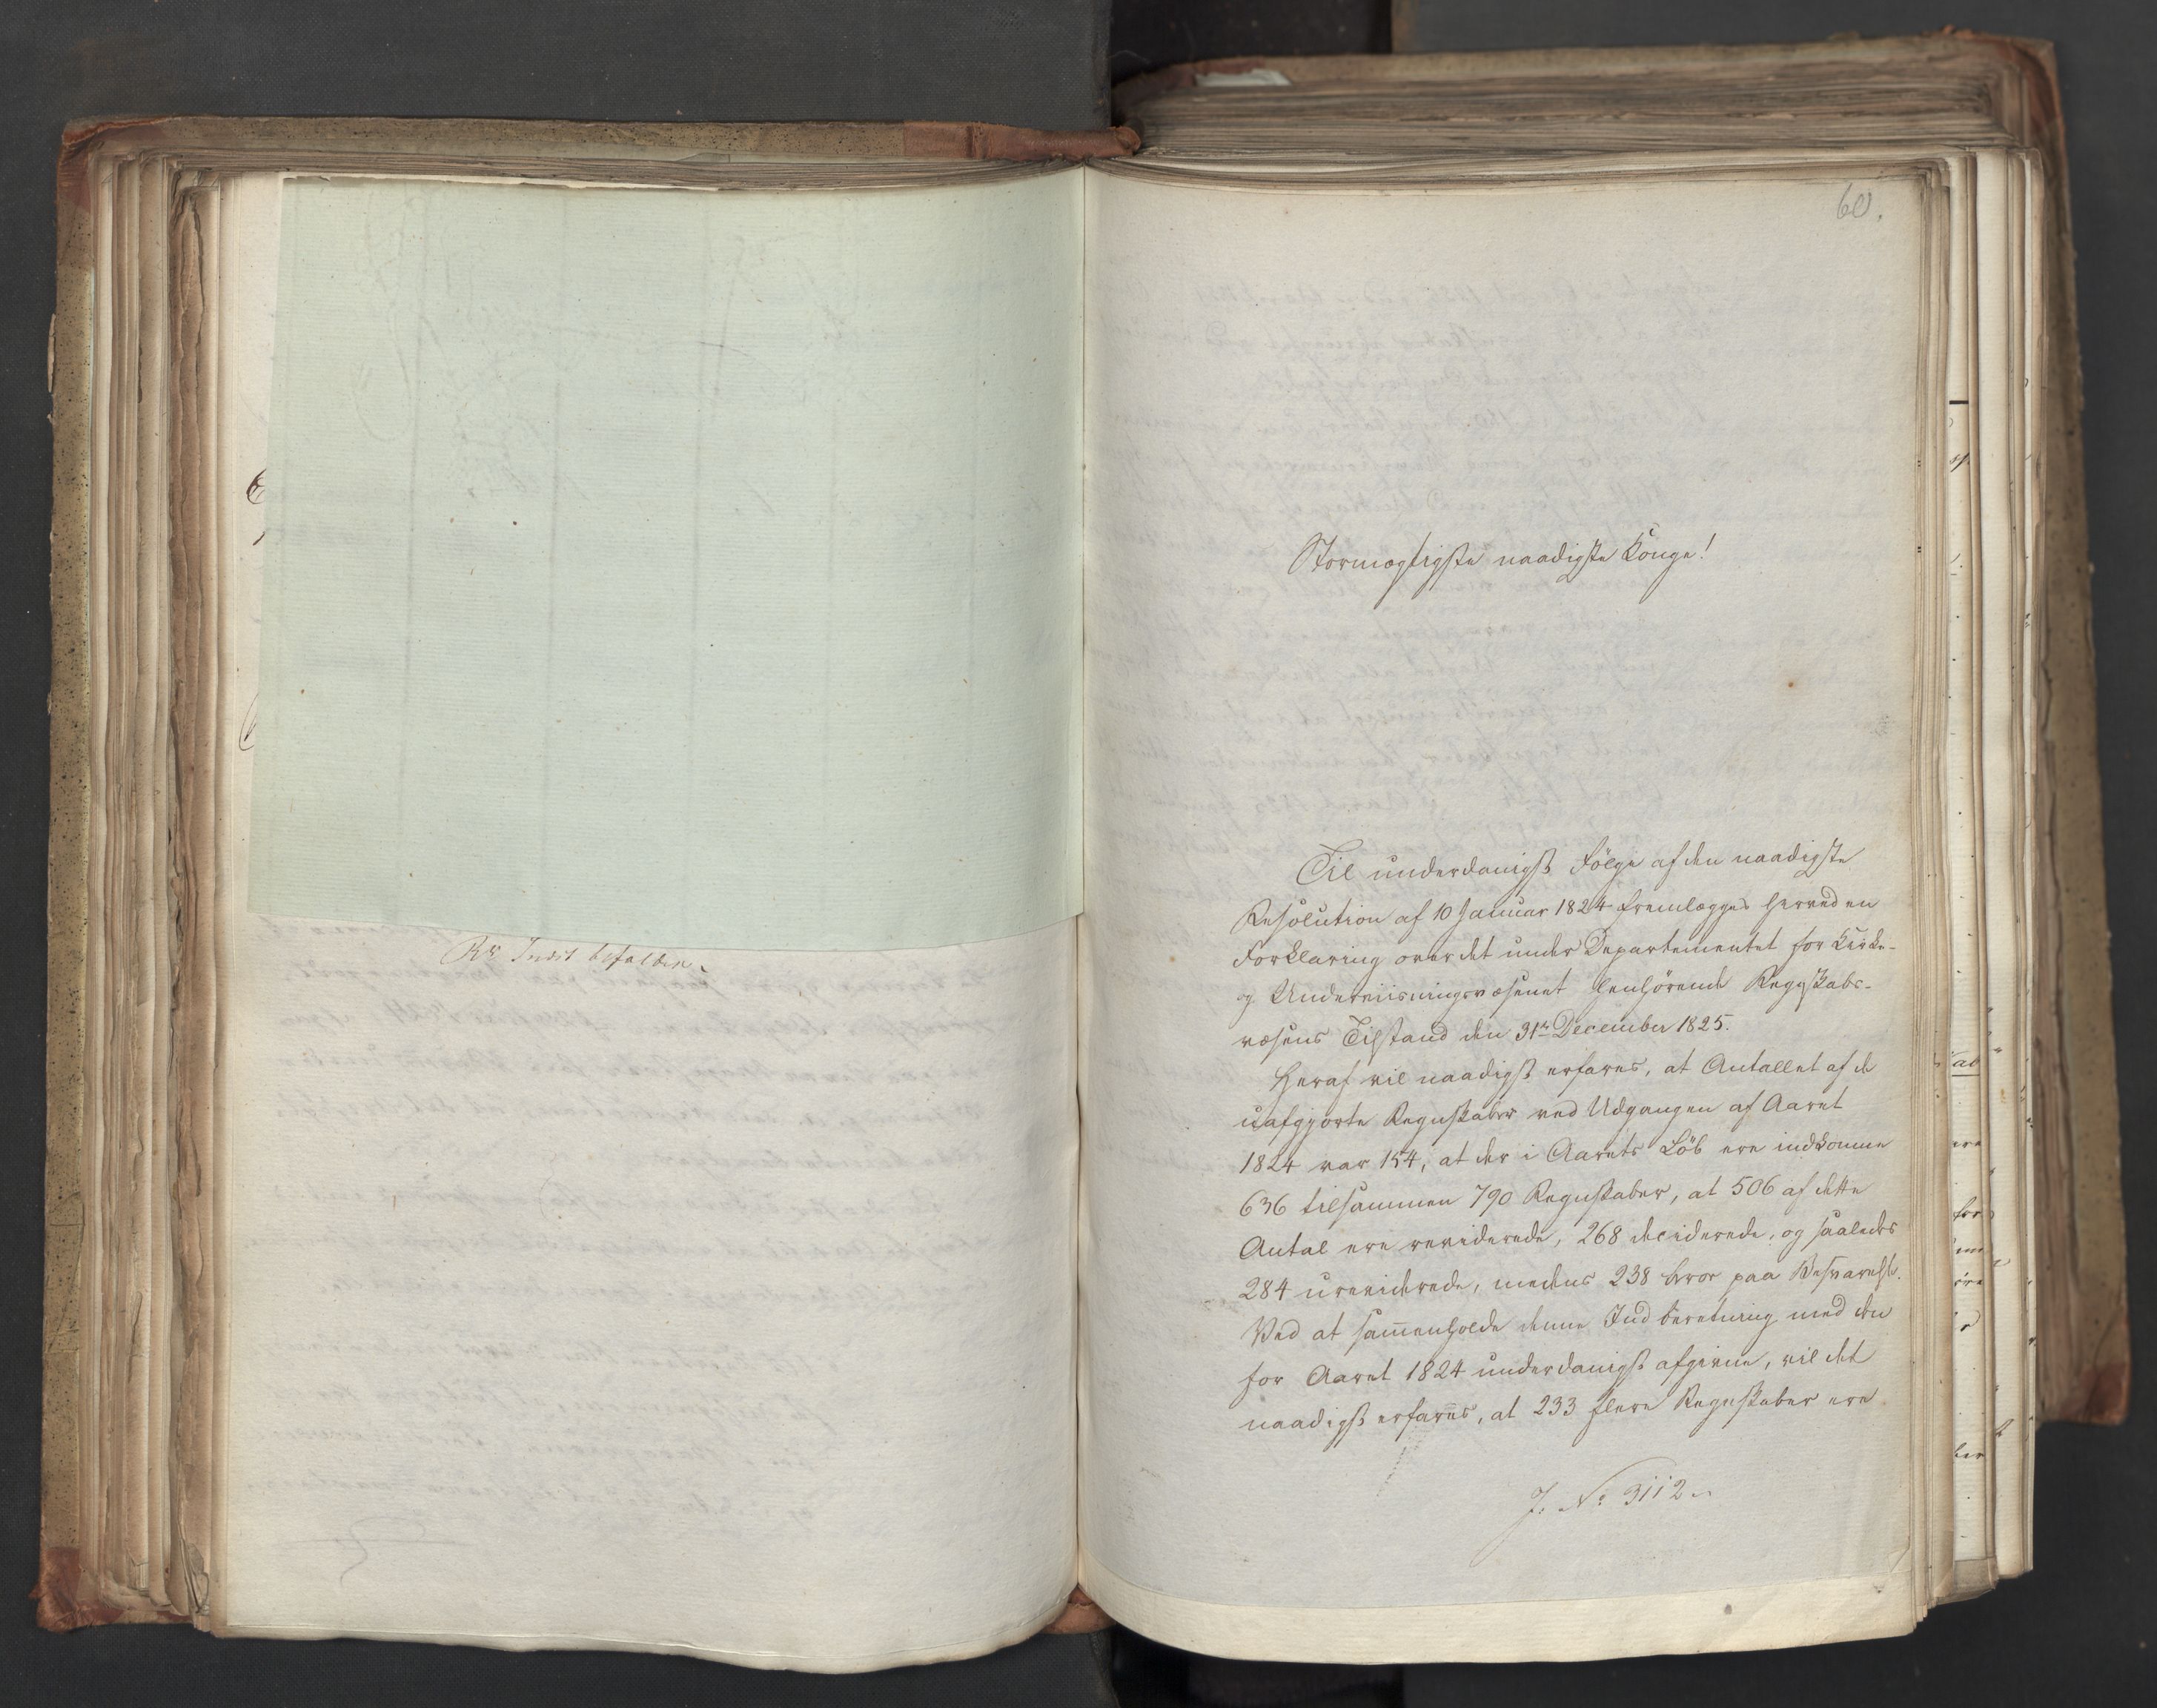 Indst befalden.
60.
Stormægtigste naadigste Konge!
Til underdanigst Følge af den naadigste
Resolution af 10 Januar 1824 fremlægges herved en
Forklaring over det under Departementet for Kirke-
og Underviisningsvæsenet henhørende Regnskabs-
væsens Tilstand den 31te December 1825.
Heraf vil naadigst erfares, at Antallet af de
uafgjorte Regnskaber ved Udgangen af Aaret
1824 var 154, at der i Aarets Løb ere indkomne
636 tilsammen 790 Regnskaber, at 506 af dette
Antal ere reviderede, 268 deciderede, og saaledes
284 ureviderede, medens 238 beror paa Besvarelse.
Ved at sam̅enholde denne Indberetning med den
for Aaret 1824 underdanigst afgivne, vil det
naadigst erfares, at 233 flere Regnskaber ere
J. No 3112